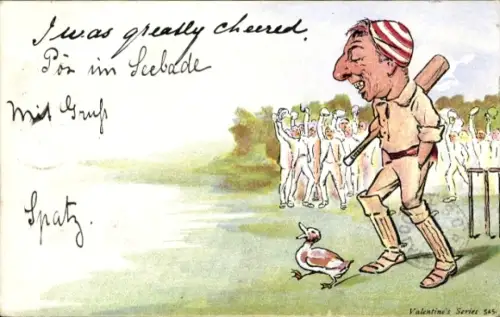 I was greatly cheered.
im Seebade
Mit Gruß
Spatz.
Valentine's Series